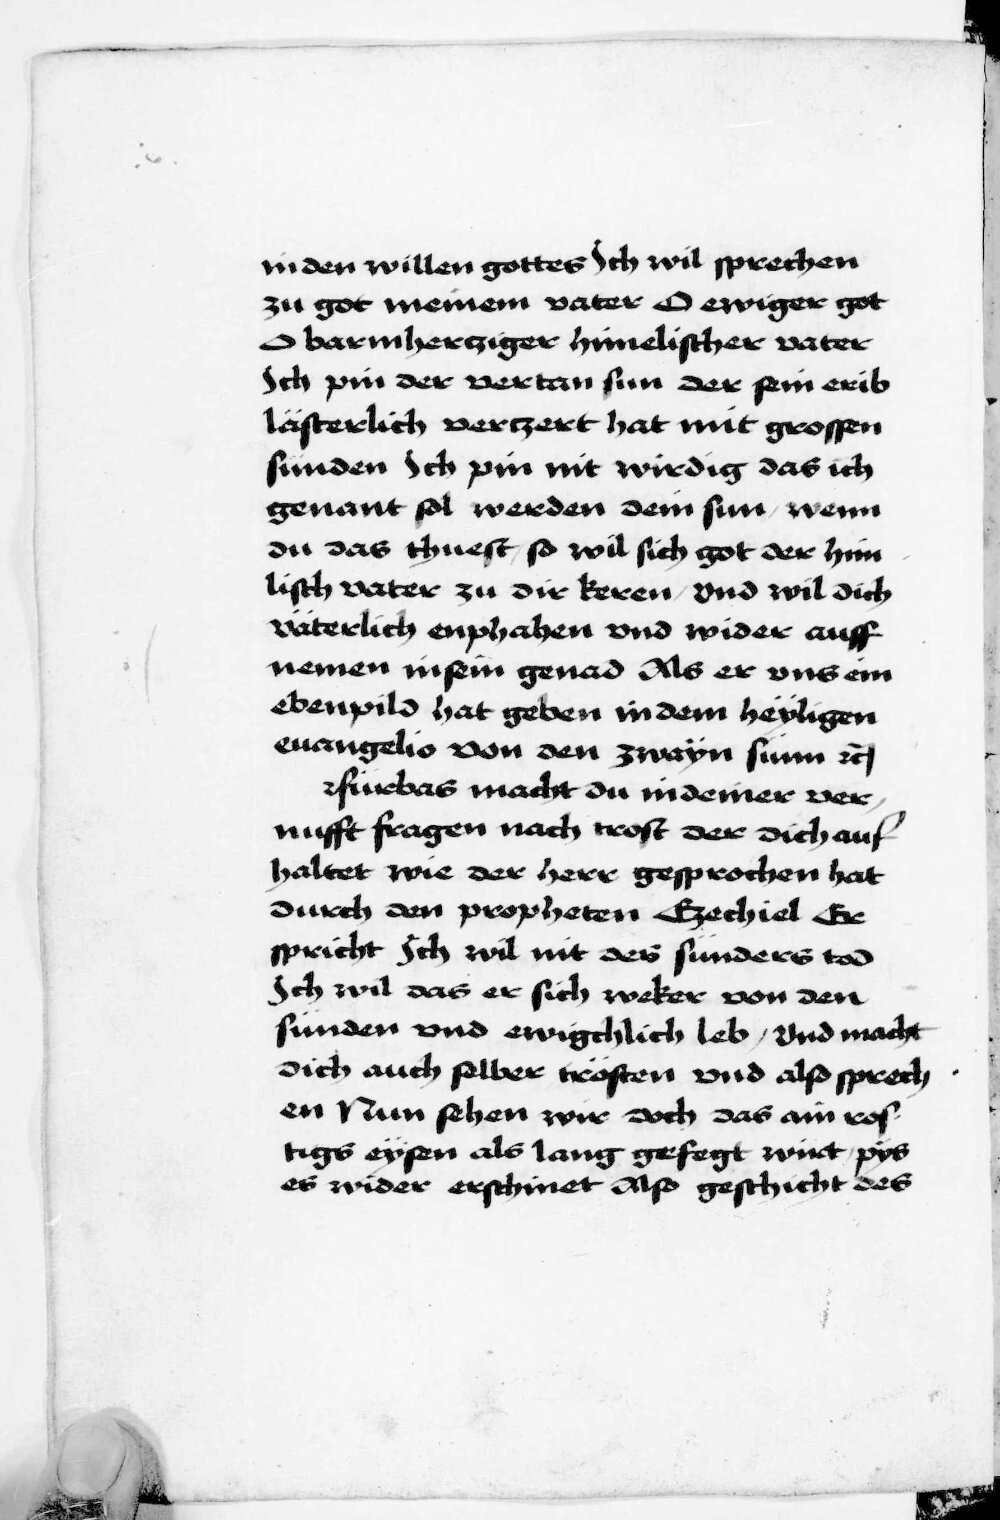 in den willen gottes Ich wil sprechen
zu got meinem vater O ewiger got
O barmhercziger himelischer vater
Ich pin der vertan sun der sein erib
lästerlich verczert hat mit grossen
sünden Ich pin nit wirdig das ich
genant sol werden dein sun / wenn
du das thuest / so wil sich got der him
lisch vater zu dir keren / Vnd wil dich
väterlich enphahen vnd wider auff
nemen in sein genad Als er vns ein
ebenpild hat geben in dem heÿligen
euangelio von den zwaÿn sünn ꝛc̃
fürbas macht du in deiner ver /
nufft fragen nach trost der dich auf
haltet wie der herr gesprochen hat
durch den propheten Ezechiel Er
spricht Ich wil nit des sünders tod
Ich wil das er sich weker von den
sünden vnd ewigchlich leb / Vnd macht
dich auch selber trösten vnd also sprech
en Nun sehen wir doch das ain ros
tigs eÿsen als lang gefegt wirt / pÿs
es wider erschinet Also geschicht des